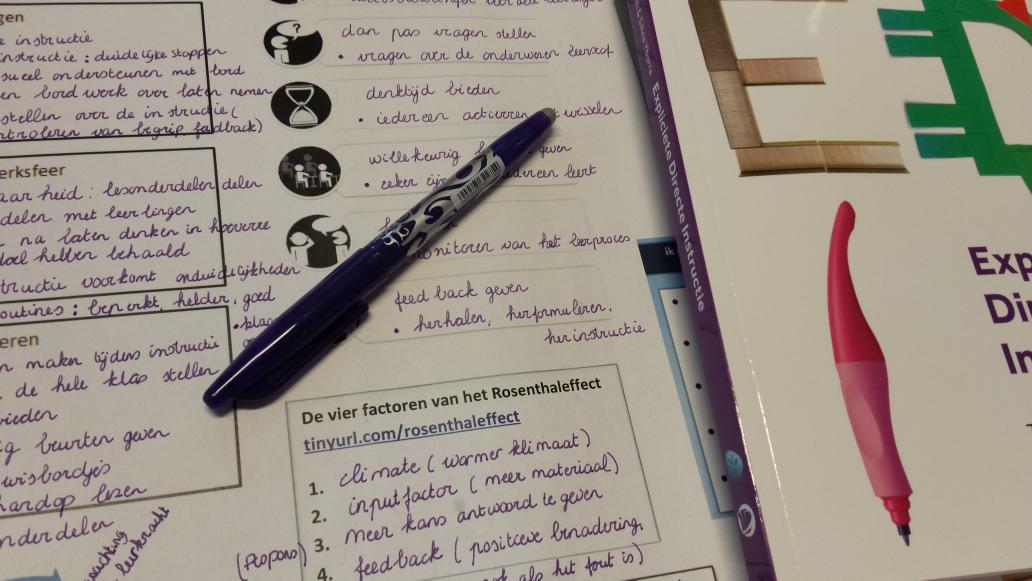 gen
instructie
instructie : duidelijke stappen
sueel ondersteunen met bord
en bord werk over laten nemen
stellen over de instructie (
ntroleren van begrip, feedback)
erksfeer
aarheid : lesonderdelen delen
delen met leerlingen
na laten denken in hoeverre
doel hebben behaald
structie voorkomt onduidelijkheden
outines : beperkt, helder, goed
eren
en maken tijdens instructie
de hele klas stellen
ieden
ig beurten geven
wisbordjes
hardop lezen
nderdelen
wachting
leerkracht
?
dan pas vragen stellen
• vragen over de onderwezen leerstof
denktijd bieden
• iedereen activeren wisselen
willekeurig geven
• zeker zijn dereen leert
monitoren van het leerproces
feed back geven
• herhalen, herformuleren,
herinstructie
De vier factoren van het Rosenthaleffect
tinyurl.com/rosenthaleffect
1. climate ( warmer klimaat)
2. inputfactor ( meer materiaal)
3. meer kans antwoord te geven
4. feedback ( positieve benadering,
ook als het fout is)
ik
Expliciete Directe Instructie
ED
Exp
Di
In